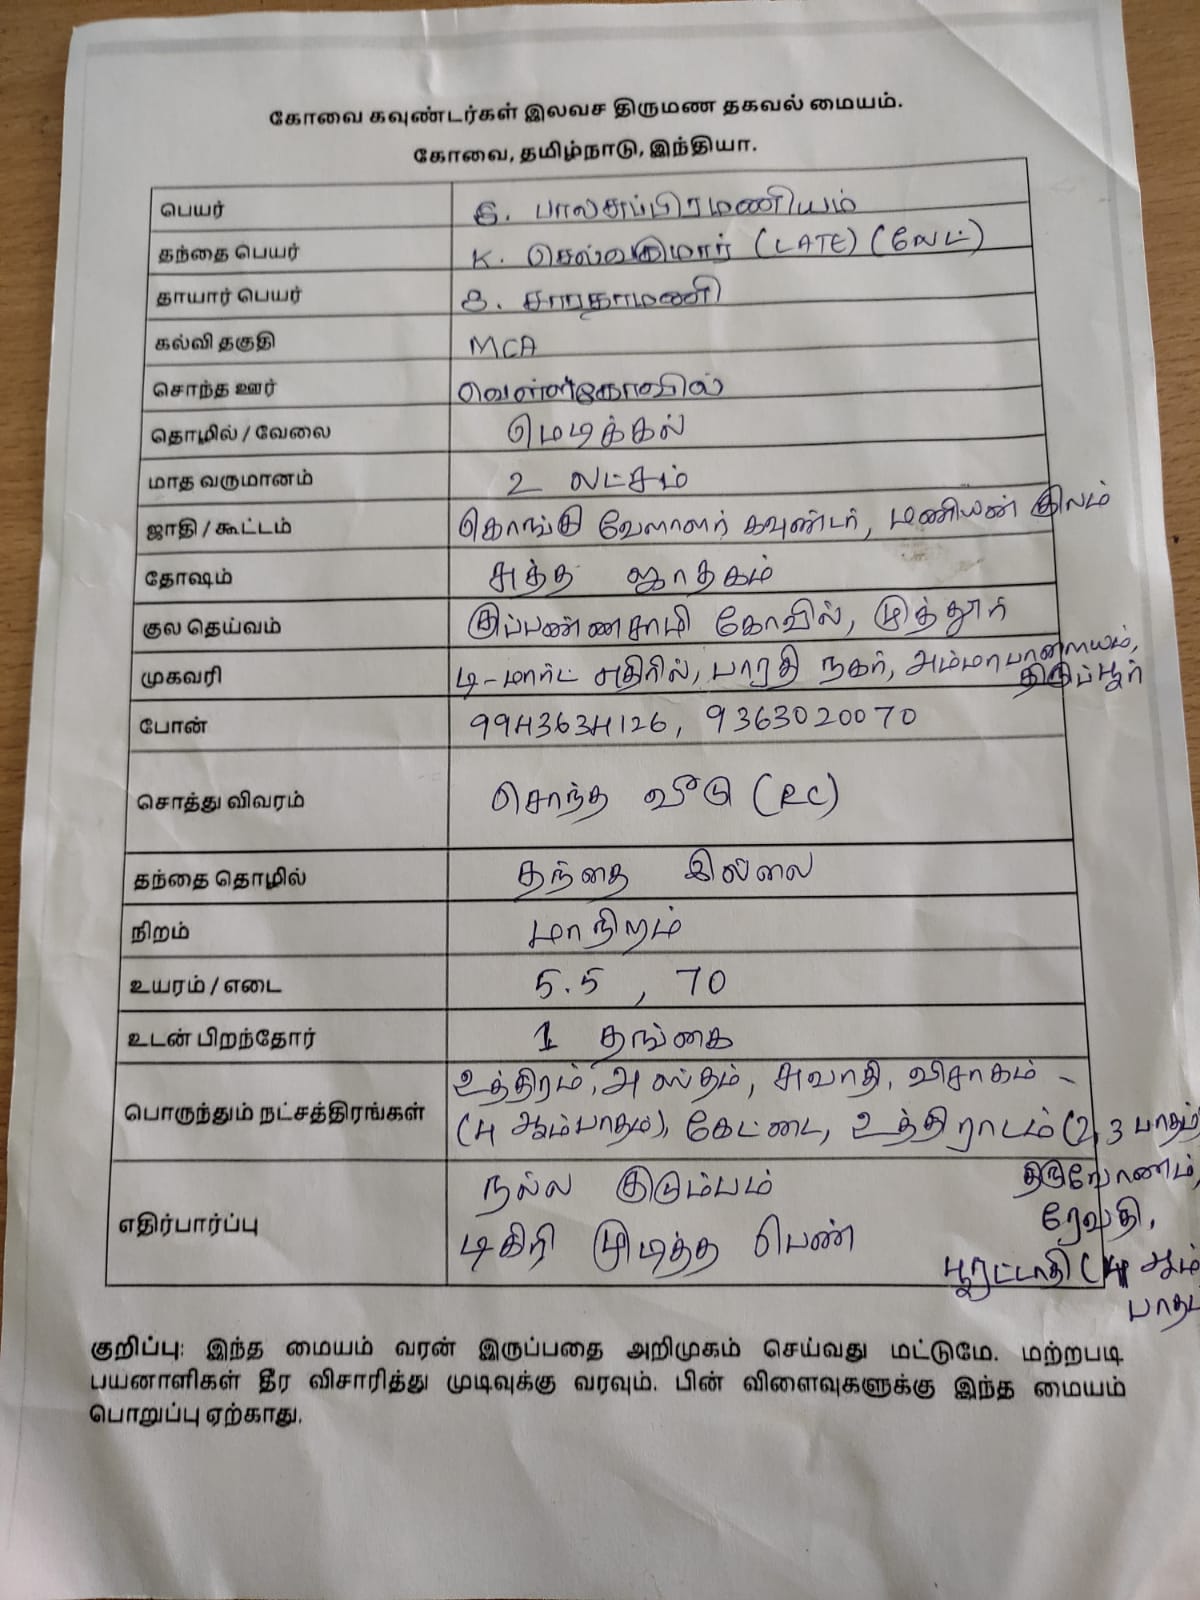 கோவை கவுண்டர்கள் இலவச திருமண தகவல் மையம்.
கோவை, தமிழ்நாடு, இந்தியா.
பெயர் S. பாலசுப்பிரமணியம்
தந்தை பெயர் K. செல்வகுமார் (LATE) (லேட்)
தாயார் பெயர் S. சாரதாமணி
கல்வி தகுதி MCA
சொந்த ஊர் வெள்ளகோவில்
தொழில் / வேலை மெடிக்கல்
மாத வருமானம் 2 லட்சம்
ஜாதி / கூட்டம் கொங்கு வேளாளர் கவுண்டர், மணியன் குலம்
தோஷம் சுத்த ஜாதகம்
குல தெய்வம் குப்பண்ணசாமி கோவில், முத்தூர்
முகவரி டி-மார்ட் எதிரில், பாரதி நகர், அம்மாபாளையம்,
திருப்பூர்
போன் 9943634126, 9363020070
சொத்து விவரம் சொந்த வீடு (RC)
தந்தை தொழில் தந்தை இல்லை
நிறம் மாநிறம்
உயரம் / எடை 5.5 , 70
உடன் பிறந்தோர் 1 தங்கை
பொருந்தும் நட்சத்திரங்கள் உத்திரம், அஸ்தம், சுவாதி, விசாகம் -
(4 ஆம்பாதம்), கேட்டை, உத்திராடம் (2,3 பாதம்)
திருவோணம்,
ரேவதி,
பூரட்டாதி (4 ஆம்
பாதம்
எதிர்பார்ப்பு நல்ல குடும்பம்
டிகிரி முடித்த பெண்
குறிப்பு: இந்த மையம் வரன் இருப்பதை அறிமுகம் செய்வது மட்டுமே. மற்றபடி
பயனாளிகள் தீர விசாரித்து முடிவுக்கு வரவும். பின் விளைவுகளுக்கு இந்த மையம்
பொறுப்பு ஏற்காது.